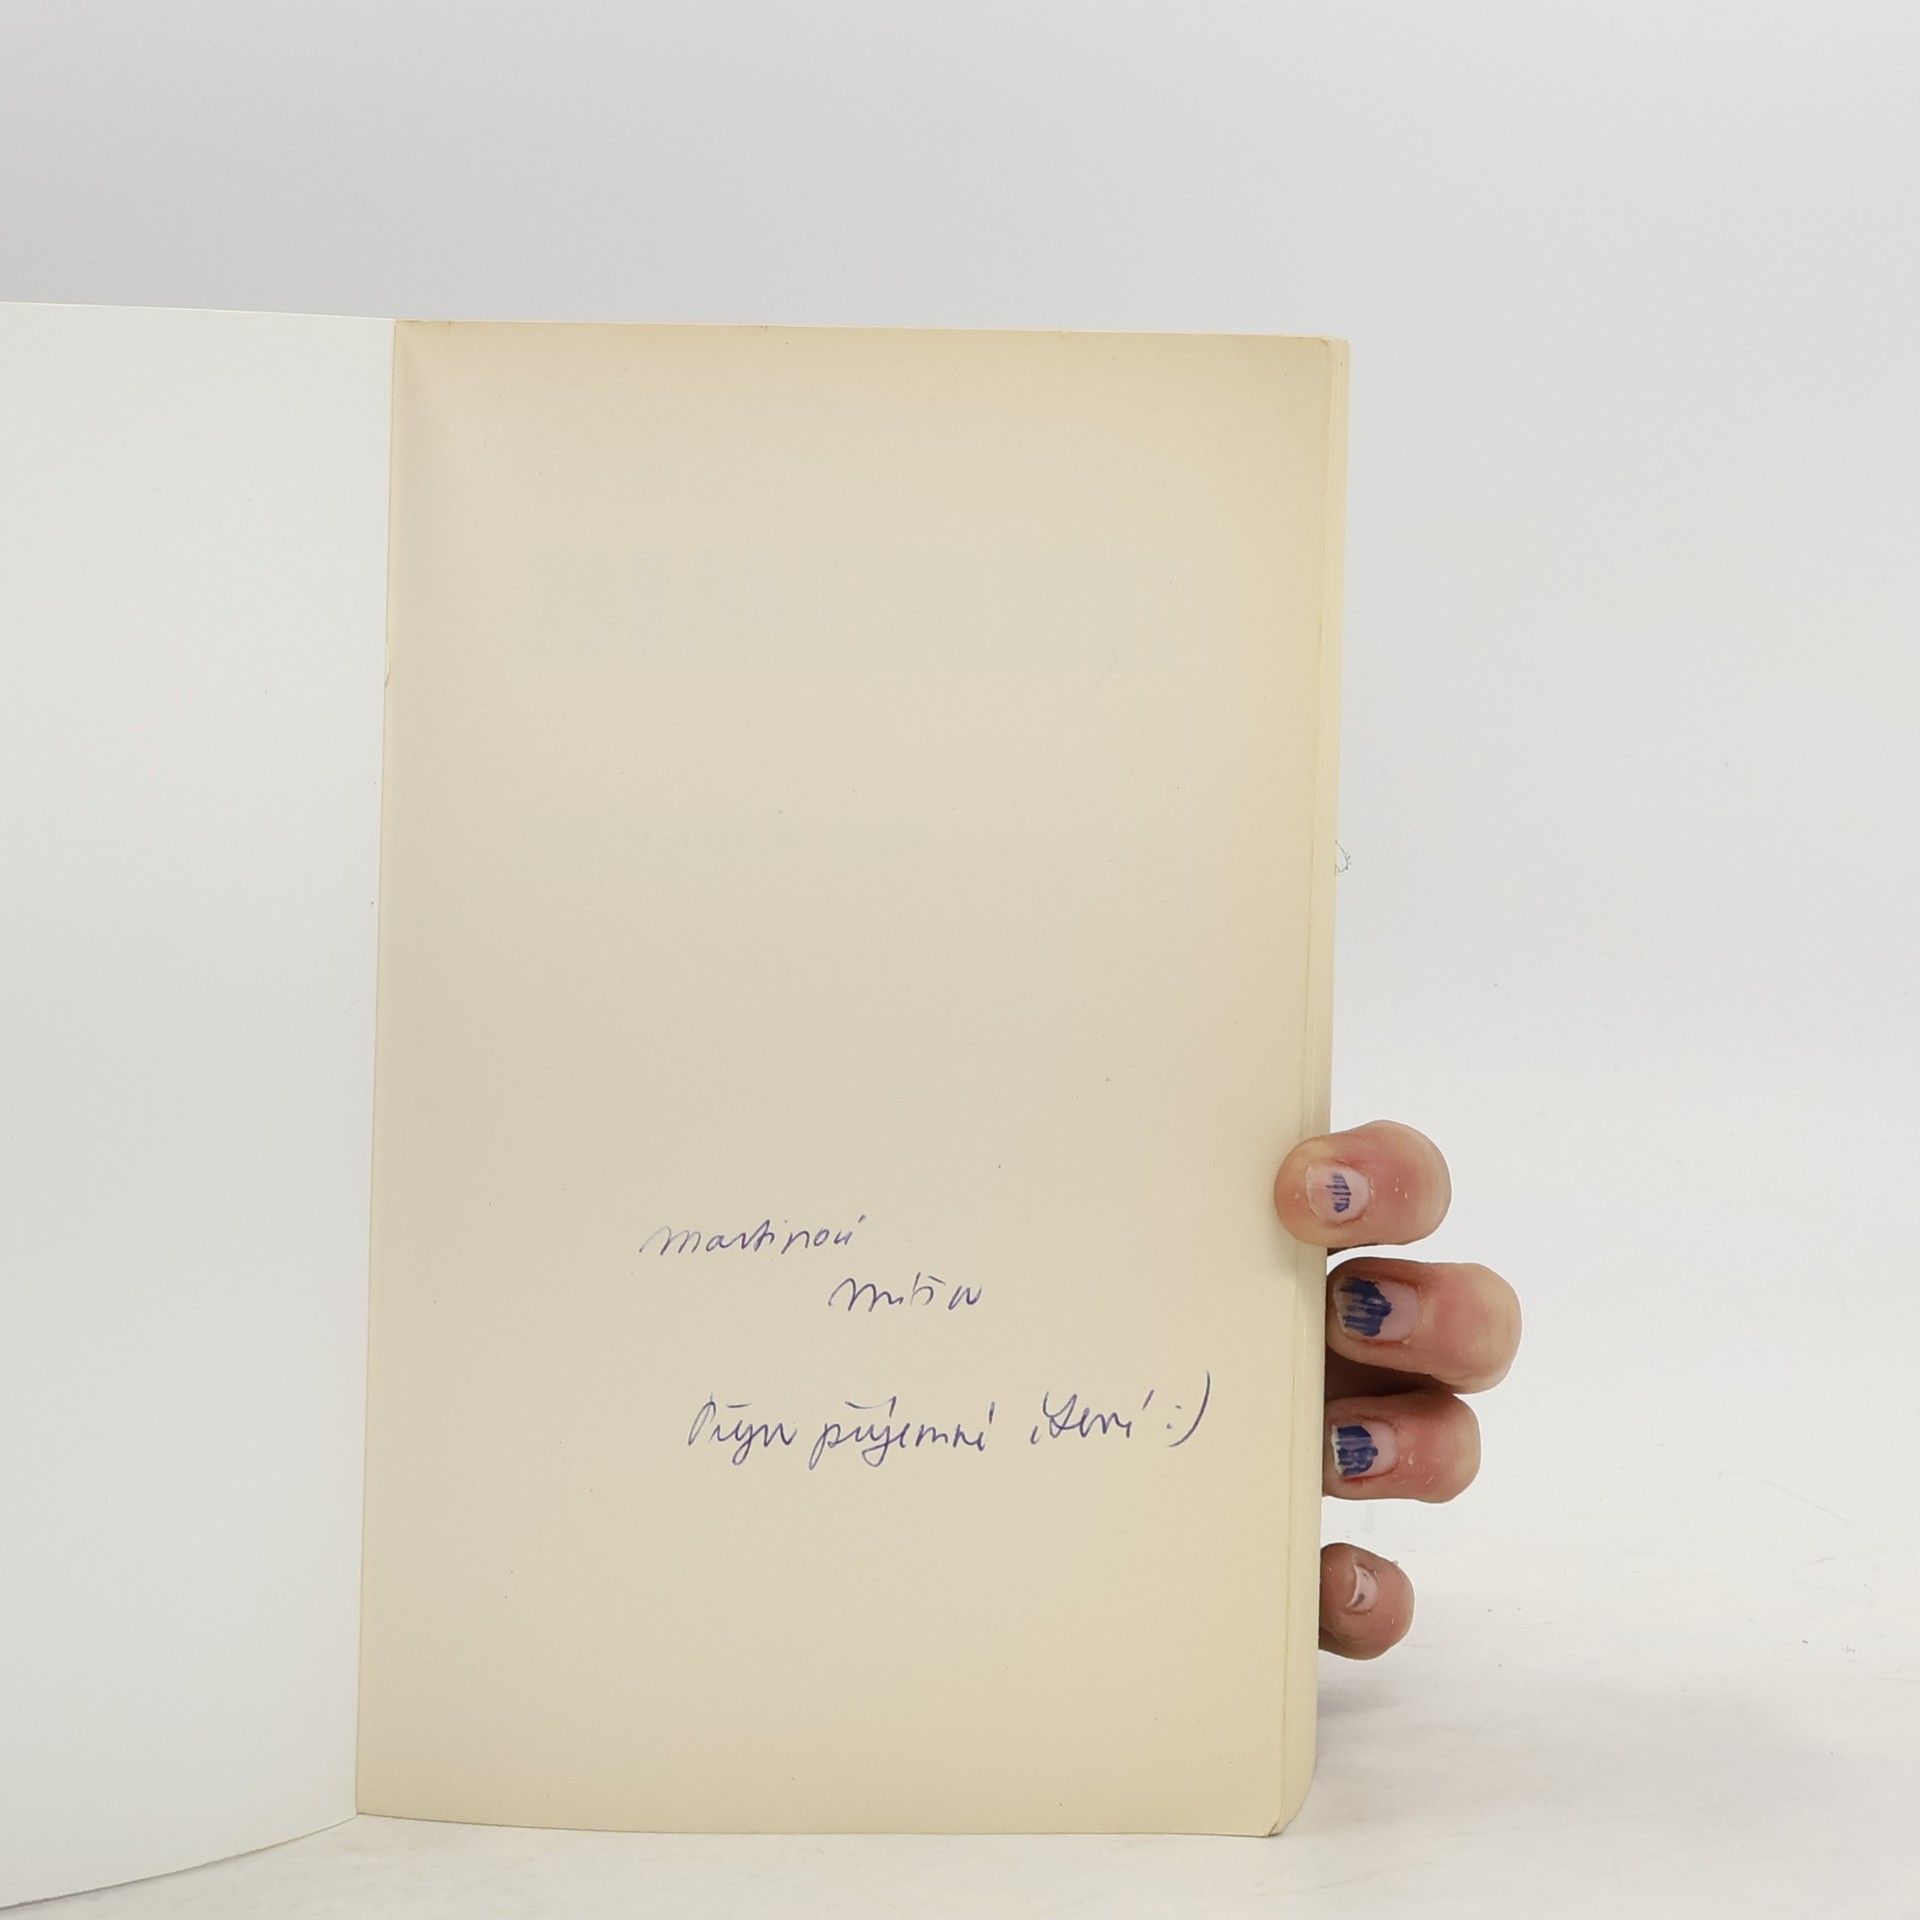 Martinovi
Míša
Přeju příjemné čtení :)